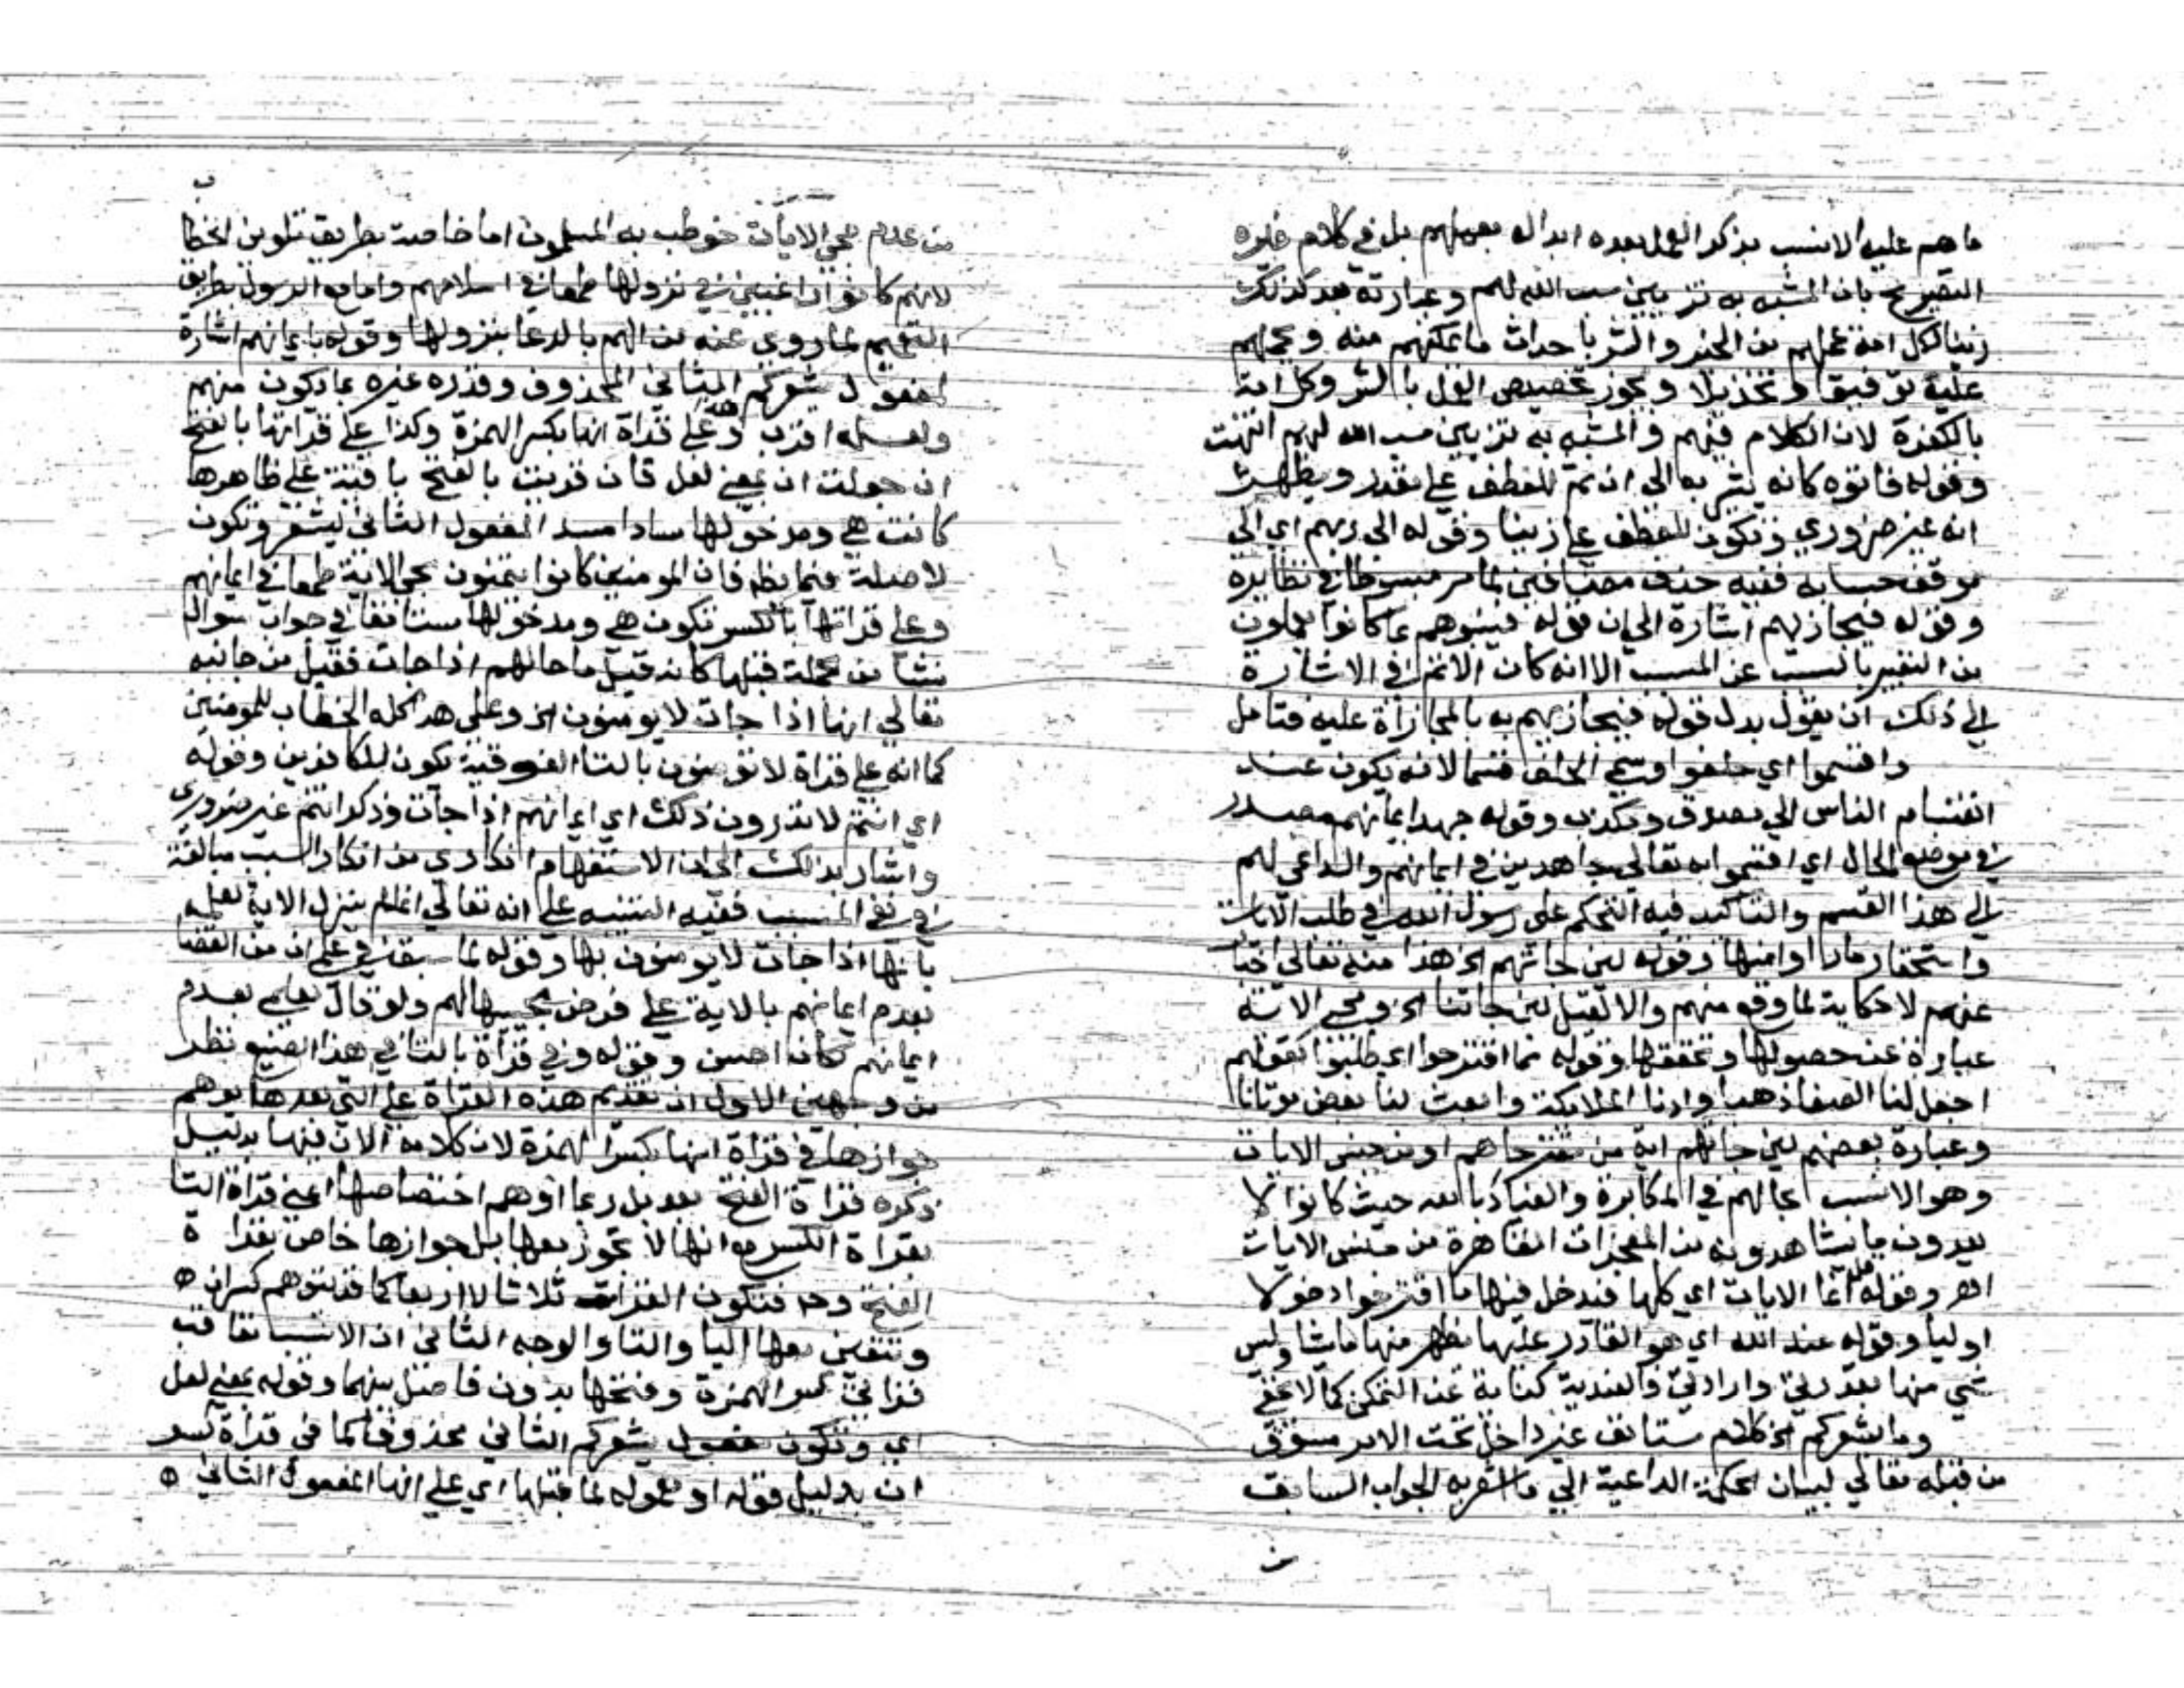 ما هم عليه الانسب بذكر العمل بعده ابداله بعملهم بل في كلام غيره
التصريح بان المشبه به تزيين سب الله لهم وعبارته بعد كذلك
زينا لكل امة عملهم من الخير والشر باحداث ما يمكنهم منه ويحملهم
عليه توفيقا وتخذيلا ويجوز تخصيص العمل بالشر وكل امة
بالكفرة لان الكلام فيهم والمشبه به تزيين سب الله لهم انتهت
وقوله فاتوه كانه يشير به الى ان ثم للعطف على مقدر ويظهر
انه غير ضروري وتكون للعطف على زينا وقوله الى ربهم اي الى
موقف حسابه ففيه حذف مضافين لما مر مبسوطا في نظايره
وقوله فيجازيهم اشارة الى ان قوله فينبئهم بما كانوا يعملون
من التعبير بالسبب عن المسبب الا انه كان الاتم في الاشارة
الى ذلك ان يقول بدل قوله فيجازيهم به بالمجازاة عليه فتامل
واقسموا اي حلفوا وسمي الحلف قسما لانه يكون عند
انقسام الناس الى مصدق ومكذب وقوله جهد ايمانهم مصدر
في موضع الحال اي اقسموا به تعالى جاهدين في ايمانهم والداعي لهم
الى هذا القسم والتاكيد فيه التحكم على رسول الله في طلب الايات
واستحقار ما راوا منها وقوله لين جاتهم الخ هذا منه تعالى اخبا
عنهم لا حكاية لما وقع منهم والا لقيل لين جاتنا الخ ومجي الاية
عبارة عن حصولها وتحققها وقوله مما اقترحوا اي طلبوا كقولهم
اجعل لنا الصفا ذهبا وارنا الملايكة وابعث لنا بعض موتانا
وعبارة بعضهم لين جاتهم اية من مقترحاهم او من جنس الايات
وهو الانسب بحالهم في المكابرة والعناد حيث كانوا لا
يعدون ما يشاهدونه من المعجزات القاهرة من جنس الايات
اهـ وقوله قل انما الايات اي كلها فيدخل فيها ما اقترحوا دخولا
اوليا وقوله عند الله اي هو القادر عليها يظهر منها ما يشا وليس
شي منها بقدرتي وارادتي والعندية كناية عن التمكن كما لا يخفى
وما يشعركم الخ كلام مستانف غير داخل تحت الامر مسوق
من قبله تعالى لبيان الحكمة الداعية الى ما اشعر به الجواب السابق
من عدم مجي الايات خوطب به المسلمون اما خاصة بطريق تلوين الخطا
لانهم كانوا راغبين في نزولها طمعا في اسلامهم واما مع الرسول بطريق
التعميم لما روي عنه من الهم بالدعا بنزولها وقوله بايمانهم اشارة
لمفعول يشعركم الثاني المحذوف وقدره غيره بما يكون منهم
ولعله اقرب وعلى قراة انها بكسر الهمزة وكذا على قراتها بالفتح
ان جعلت ان بمعنى لعل فان قريت بالفتح باقية على ظاهرها
كانت هي ومدخولها سادا مسد المفعول الثاني ليشعر وتكون
لا صلة فيما يظهر فان المومنين كانوا يتمنون مجي الاية طمعا في ايمانهم
وعلى قراتها بالكسر تكون هي ومدخولها مستانفا في جواب سوال
نشا من جملة قبلها كانه قيل ما حالهم اذا جات فقيل من جانبه
تعالى انها اذا جات لا يومنون الخ وعلى هذا كله الخطاب للمومنين
كما انه على قراة لا تومنون بالتا الفوقية يكون للكافرين وقوله
اي انتم لا تدرون ذلك اي ايمانهم اذا جات وذكر انتم غير ضروري
واشار بذلك الى ان الاستفهام انكاري من انكار السبب مبالغة
في نفي المسبب ففيه التنبيه على انه تعالى انما لم ينزل الاية لعلمه
بانها اذا جات لا يومنون بها وقوله لما سبق في علمي من القضا
بعدم ايمانهم بالاية على فرض مجيها لهم ولو قال لعلمي بعدم
ايمانهم لكان احسن وقوله وفي قراة بالتا في هذا الصنيع نظر
من وجهين الاول ان تقديم هذه القراة على التي بعدها يوهم
جوازها في قراة انها بكسر الهمزة لان كلامه الان فيها بدليل
ذكره قراة الفتح بعد بل ربما اوهم اختصاصها اعني قراة التا
بقراة الكسر مع انها لا تجوز معها بل جوازها خاص بقراة
الفتح وح فتكون القراات ثلاثا لا اربعا كما قد يتوهم كسران
وتتعين معها اليا والتا والوجه الثاني ان الانسب تعاقب
قراتي كسر الهمزة وفتحها بدون فاصل بينهما وقوله بمعنى لعل
اي وتكون مفعول يشعركم الثاني محذوفا كما في قراة كسر
ان بدليل قوله او معموله لما قبلها اي على انها المفعول الثاني